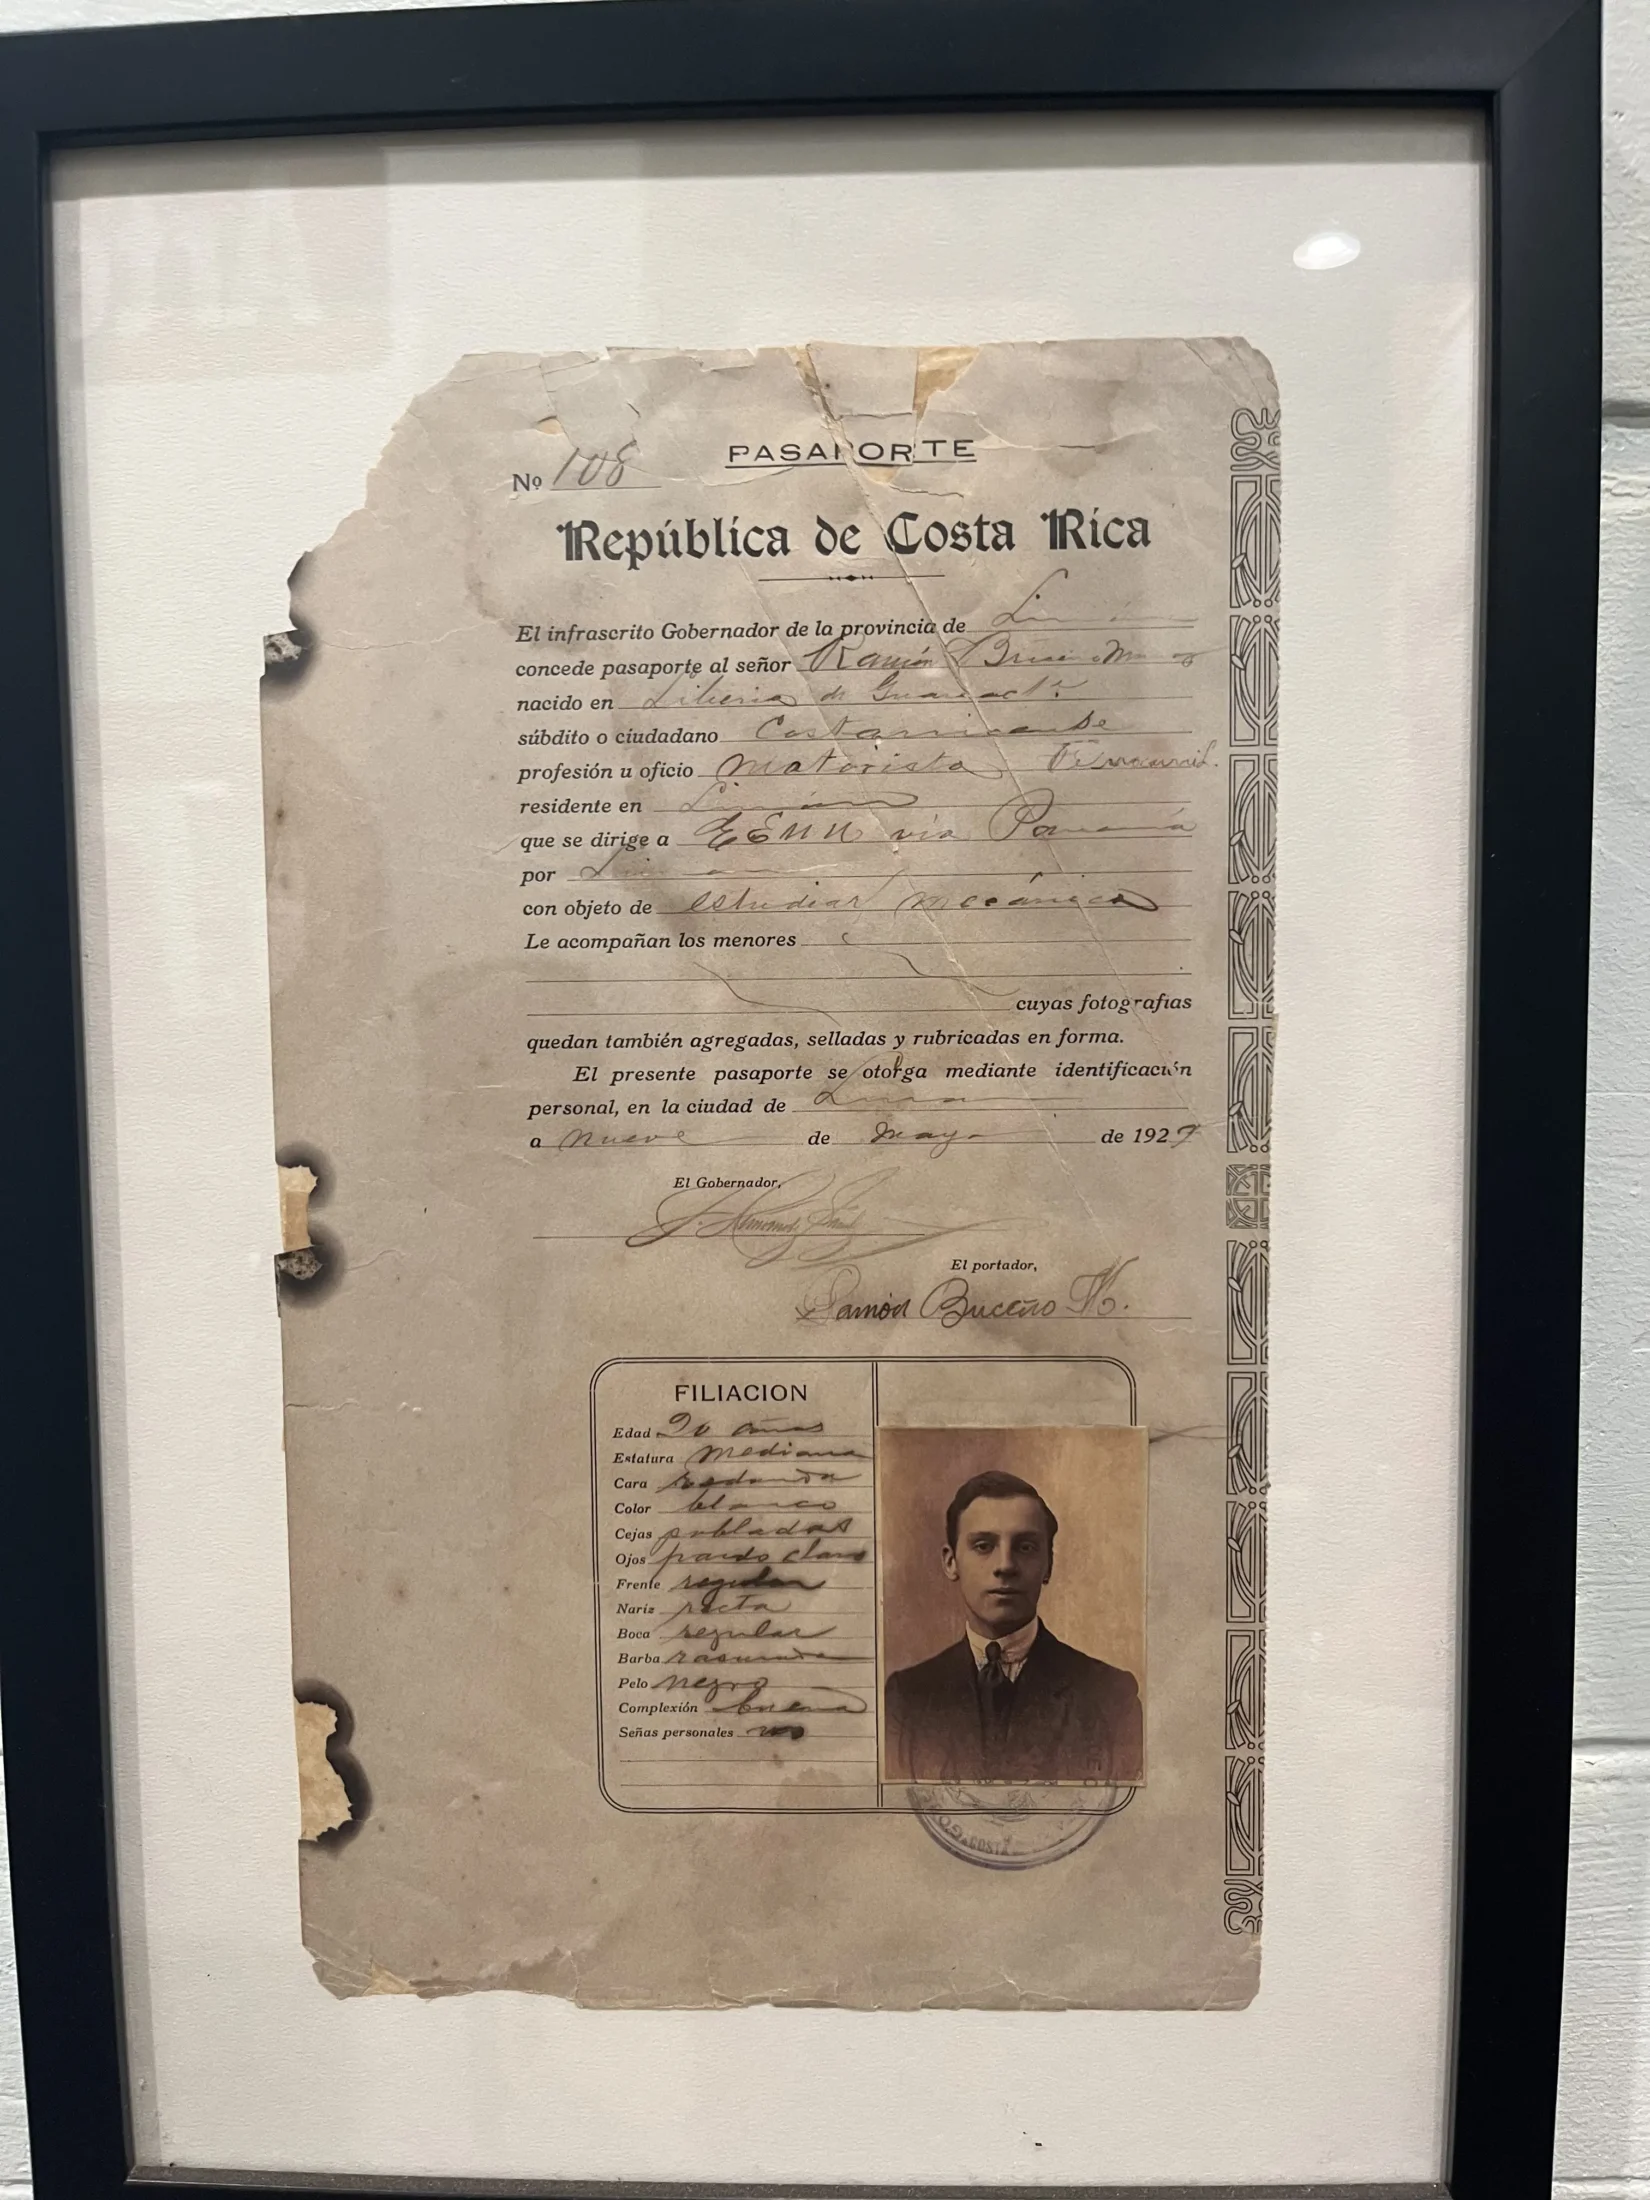 PASAPORTE
Nº 108
República de Costa Rica
El infrascrito Gobernador de la provincia de Limón
concede pasaporte al señor Ramón Briceño
nacido en Liberia de
súbdito o ciudadano Costarricense
profesión u oficio Motorista
residente en Limón
que se dirige a EEUU vía Panamá
por Limón
con objeto de estudiar mecánica
Le acompañan los menores
cuyas fotografias
quedan también agregadas, selladas y rubricadas en forma.
El presente pasaporte se otorga mediante identificación
personal, en la ciudad de Limón
a nueve de Mayo de 1927
El Gobernador,
El portador,
Ramón Buceño
FILIACION
Edad 20 años
Estatura Mediana
Cara redonda
Color blanco
Cejas pobladas
Ojos pardo claro
Frente regular
Nariz recta
Boca regular
Barba rasurada
Pelo negro
Complexión buena
Señas personales no
COSTA